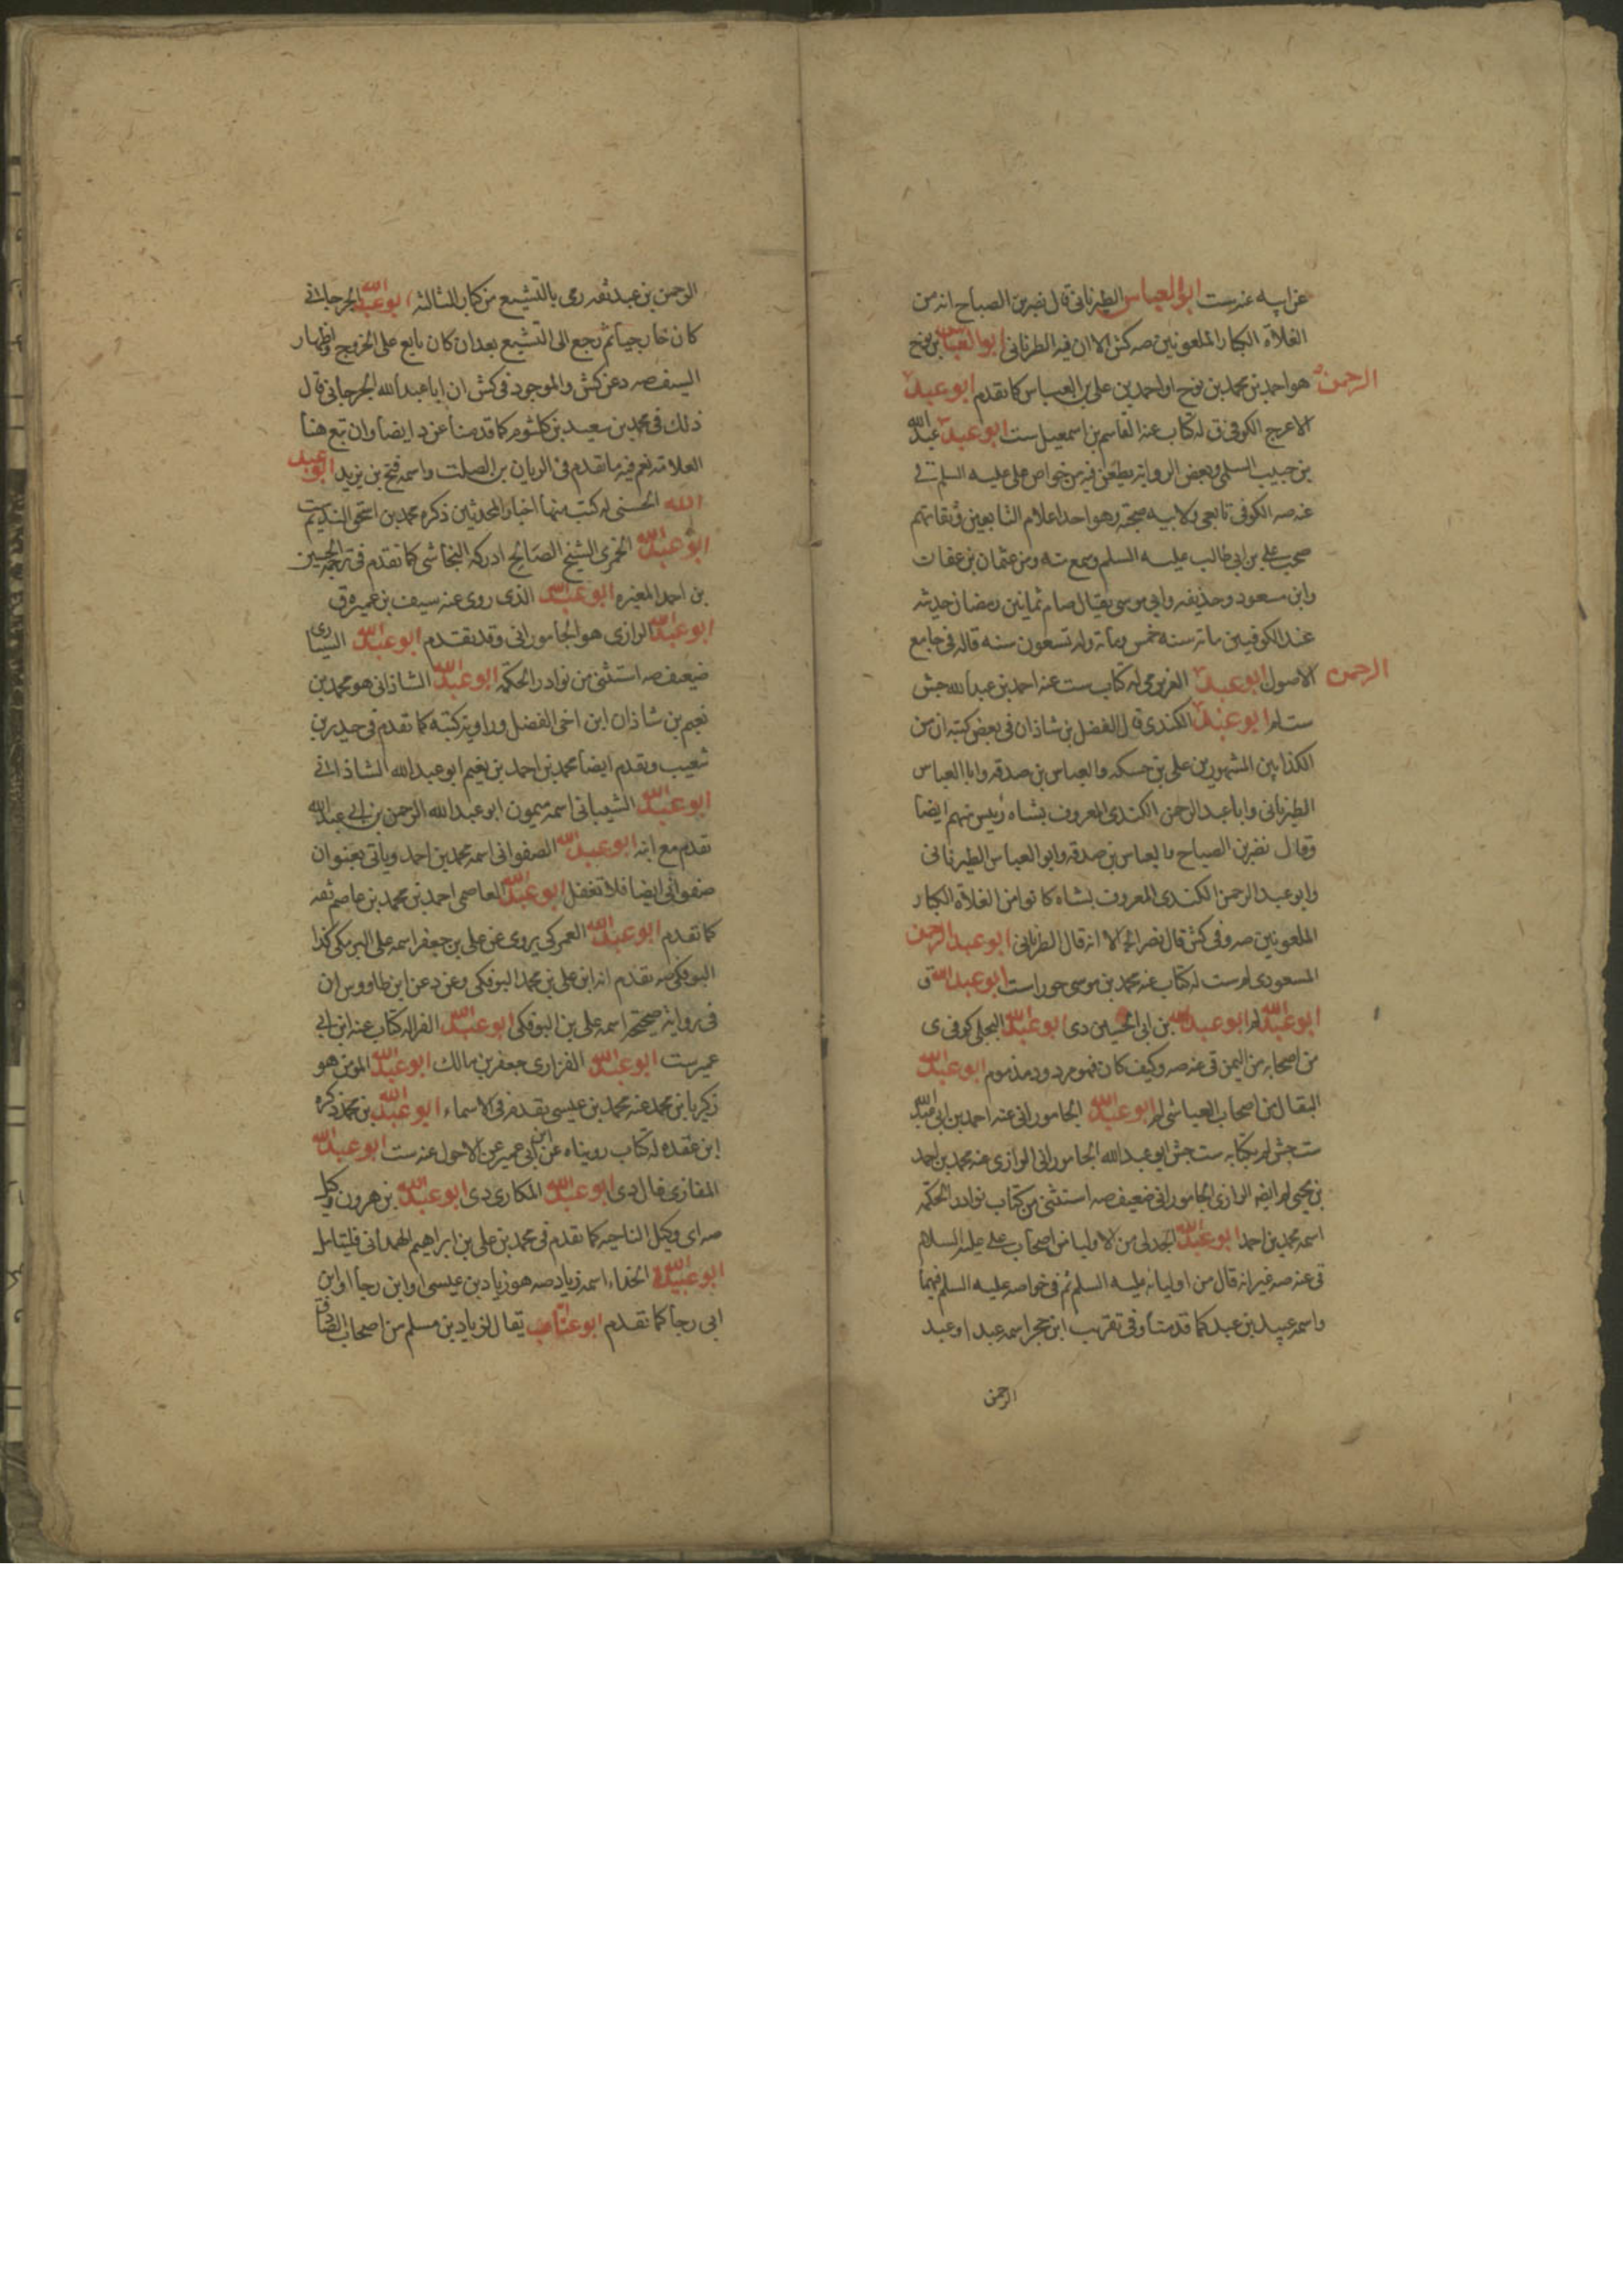 عن ابيه عنه ست ابو العباس الطبرنانى قال نصر بن الصباح انه من
الغلاة الكبار الملعونين صه كش الا ان فيه الطرنانى ابو العباس بن نوح
هو احمد بن محمد بن نوح او احمد بن على بن العباس كما تقدم ابو عبد الرحمن
الاعرج الكوفى ق له كتاب عنه القاسم بن اسمعيل ست ابو عبد الرحمن عبد الله
بن حبيب السلمى وبعض الرواة يطعن فيه من خواص على عليه السلم قى
عنه صه الكوفى تابعى ولابيه صحبة وهو احد اعلام التابعين وثقاتهم
صحب على بن ابى طالب عليه السلم وسمع منه ومن عثمان بن عفان
وابن مسعود وحذيفه وابى موسى يقال صام ثمانين رمضان حديثه
عند الكوفيين مات سنه خمس ومأته وله تسعون سنه قاله فى جامع
الاصول ابو عبد الرحمن العزرمى له كتاب ست عنه احمد بن عبد الله جش
ست لم ابو عبد الرحمن الكندى قال الفضل بن شاذان فى بعض كتبه ان من
الكذابين المشهورين على بن حسكه والعباس بن صدقه وابا العباس
الطبرنانى وابا عبد الرحمن الكندى المعروف بشاه رئيس منهم ايضا
وقال نصر بن الصباح والعباس بن صدقه وابو العباس الطبرنانى
وابو عبد الرحمن الكندى المعروف بشاه كانوا من الغلاة الكبار
الملعونين صه وفى كش قال نصر الخ الا انه قال الطرنانى ابو عبد الرحمن
المسعودى لم ست له كتاب عنه محمد بن موسى حورا ست ابو عبد الله ق
ابو عبد الله لم ابو عبد الله بن ابى الحسين دى ابو عبد الله البجلى كوفى ى
من اصحابه من اليمن قى عنه صه وكيف كان فهو مردود مذموم ابو عبد الله
البقال من اصحاب العياشى لم ابو عبد الله الجامورانى عنه احمد بن ابى عبد الله
ست جش لم بكتابه ست جش ابو عبد الله الجامورانى الرازى عنه محمد بن احمد
بن يحيى لم ايضه الرازى الجامورانى ضعيف صه استثنى من كتاب نوادر الحكمه
اسمه محمد بن احمد ابو عبد الله الجدلى من الاولياء من اصحاب على عليه السلام
قى عنه صه غير انه قال من اوليائه عليه السلم ثم فى خواصه عليه السلم فيهما
واسمه عبيد بن عبد كما قدمنا وفى تقريب ابن حجر اسمه عبد او عبد
الرحمن
الرحمن بن عبد ثقه رمى بالتشيع من كبار الثالثه ابو عبد الله الجرجانى
كان خارجيا ثم رجع الى التشيع بعد ان كان بايع على الخروج واظهار
السيف صه د عن كش والموجود فى كش ان ابا عبد الله الجرجانى قال
ذلك فى محمد بن سعيد بن كلثوم كما قدمنا عن د ايضا وان تبع هنا
العلامه نعم فيه ما تقدم فى الريان بن الصلت واسمه فتح بن يزيد ابو عبد
الله الحسنى له كتب منها اخبار المحدثين ذكره محمد بن اسحق النديم ست
ابو عبد الله الخمرى الشيخ الصالح ادركه النجاشى كما تقدم فى ترجمة الحسين
بن احمد المغيره ابو عبد الله الذى روى عنه سيف بن عميره ق
ابو عبد الله الرازى هو الجامورانى وقد تقدم ابو عبد الله السيارى
ضيعف صه استثنى من نوادر الحكمه ابو عبد الله الشاذانى هو محمد بن
نعيم بن شاذان ابن اخى الفضل وراوية كتبه كما تقدم فى حيدر بن
شعيب وتقدم ايضا محمد بن احمد بن نعيم ابو عبد الله الشاذانى
ابو عبد الله الشيبانى اسمه ميمون ابو عبد الله الرحمن بن ابى عبد الله
تقدم مع ابنه ابو عبد الله الصفوانى اسمه محمد بن احمد وياتى بعنوان
صفوانى ايضا فلا تغفل ابو عبد الله العاصمى احمد بن محمد بن عاصم ثقه
كما تقدم ابو عبد الله العمركى يروى عن على بن جعفر اسمه على البرمكى كذا
البوفكى صه تقدم انه ابن على بن محمد البوفكى وعن د عن ابن طاووس ان
فى رواية صحيحة اسمه على بن البوفكى ابو عبد الله الفرا له كتاب عنه ابن ابى
عمير ست ابو عبد الله الفزارى جعفر بن مالك ابو عبد الله المؤمن هو
زكريا بن محمد عنه محمد بن عيسى تقدم فى الاسماء ابو عبد الله بن محمد ذكره
ابن عقده له كتاب رويناه عن ابن ابى عمير عن الاحول عنه ست ابو عبد الله
المغازى غال دى ابو عبد الله المكارى دى ابو عبد الله بن هرون وكيل
صه اى وكيل الناحيه كما تقدم فى محمد بن على بن ابراهيم الهمدانى فليتامل
ابو عبيدة الحذاء اسمه زياد صه هو زياد بن عيسى او ابن رجا او ابن
ابى رجا كما تقدم ابو عتاب يقال لزياد بن مسلم من اصحاب الصادق